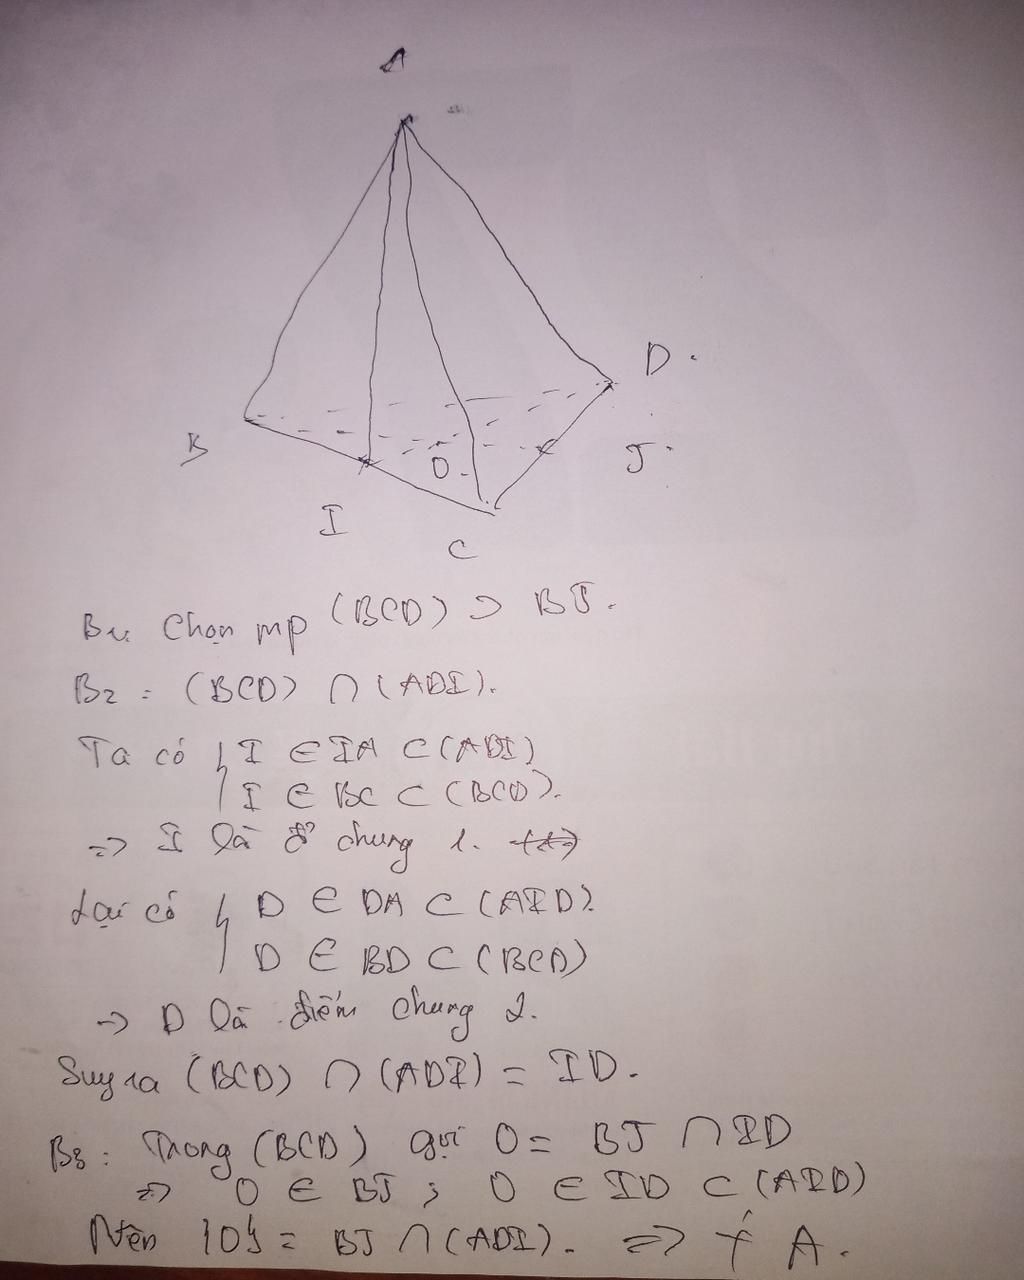 A
D.
B
O
J.
I
C
B1: Chọn mp (BCD) ⊃ BJ.
B2: (BCD) ∩ (ADI).
Ta có { I ∈ IA ⊂ (ADI)
I ∈ BC ⊂ (BCD).
=> I là đ' chung 1.
Lại có { D ∈ DA ⊂ (AID).
D ∈ BD ⊂ (BCD)
-> D là điểm chung 2.
Suy ra (BCD) ∩ (ADI) = ID.
B3: Trong (BCD) gọi O = BJ ∩ ID
=> O ∈ BJ ; O ∈ ID ⊂ (AID)
Nên {O} = BJ ∩ (ADI). => Ý A.